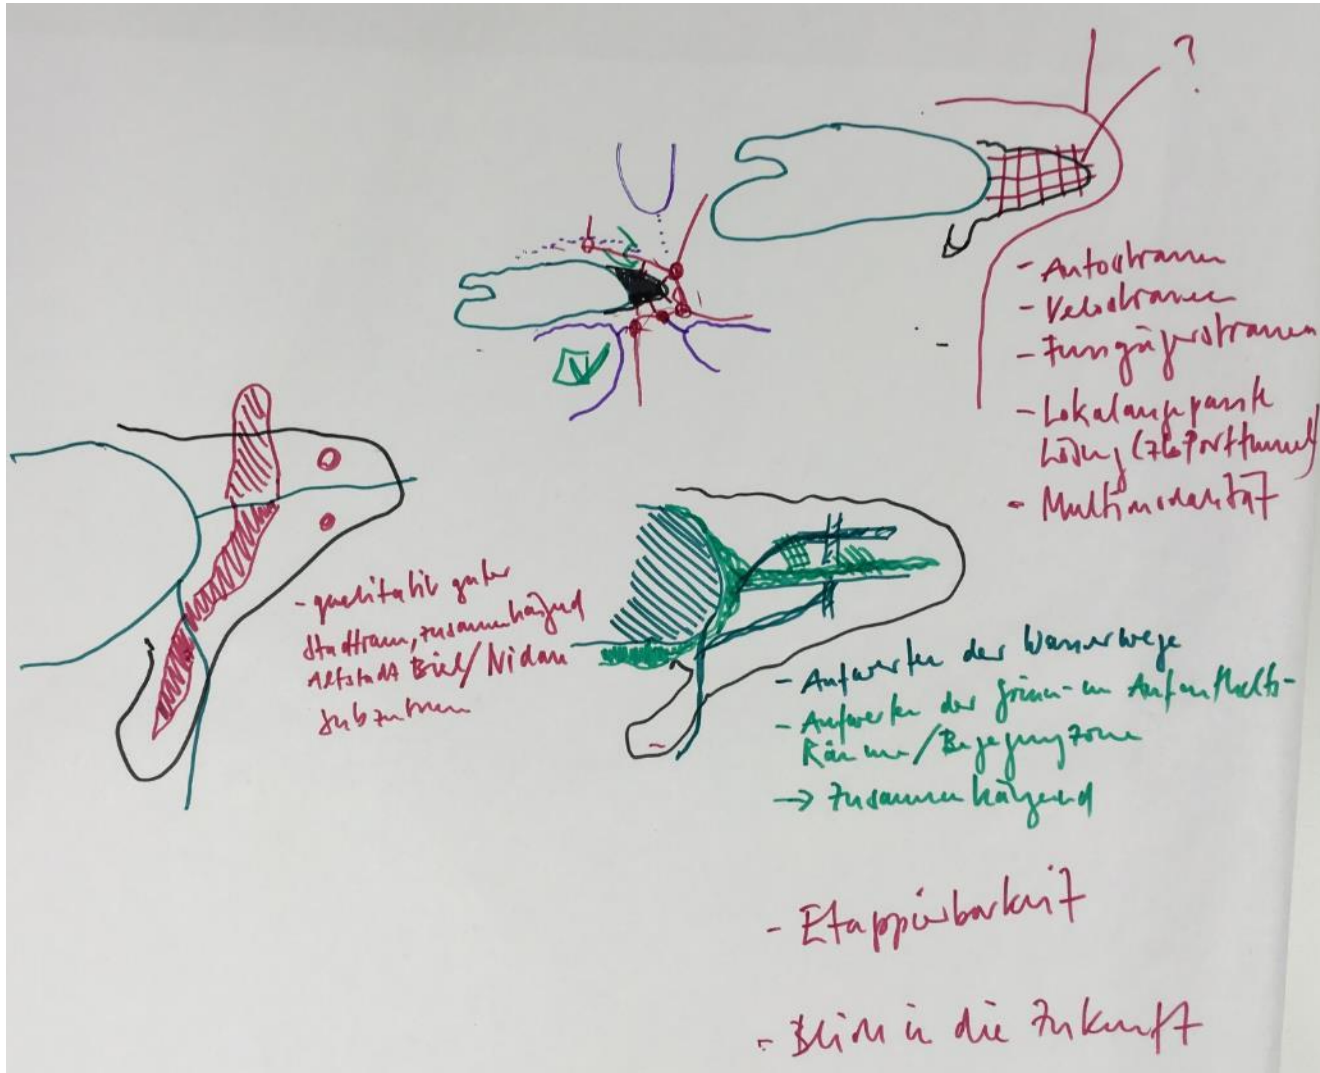 ?
- Autostrassen
- Velostrassen
- Fussgängerstrassen
- Lokalangepasste
Lösung (zB Porttunnel)
- Multimodalität
- qualitativ guter
Stadtraum, zusammenhängend
Altstadt Biel/Nidau
Subzentren
- Aufwerten der Wasserwege
- Aufwerten der Grün- en Aufenthalts-
Räume/Begegnungzone
→ Zusammenhängend
- Etappierbarkeit
- Blick in die Zukunft